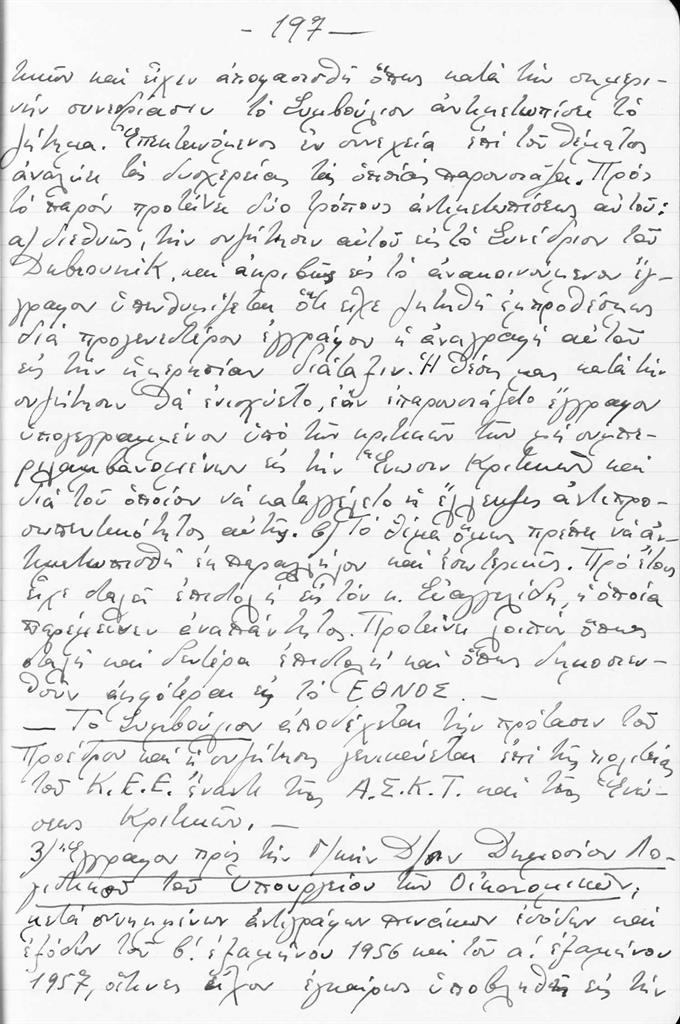 - 197 -
τικῶν καὶ εἶχεν ἀποφασισθῆ ὅπως κατὰ τὴν σημερι-
νὴν συνεδρίασιν τὸ Συμβούλιον ἀντιμετωπίσει τὸ
ζήτημα. Ἐπεκτεινόμενος ἐν συνεχείᾳ ἐπὶ τοῦ θέματος
ἀναλύει τὰς δυσχερείας τὰς ὁποίας παρουσιάζει. Πρὸς
τὸ παρὸν προτείνει δύο τρόπους ἀντιμετωπίσεως αὐτοῦ:
α) διεθνῶς, τὴν συζήτησιν αὐτοῦ εἰς τὸ Συνέδριον τοῦ
Dubrovnik, καὶ ἀκριβῶς εἰς τὸ ἀνακοινούμενον ἔγ-
γραφον ὑπενθυμίζεται ὅτι εἶχε ζητηθῆ ἐμπροθέσμως
διὰ προγενεστέρου ἐγγράφου ἡ ἀναγραφὴ αὐτοῦ
εἰς τὴν ἡμερησίαν διάταξιν. Ἡ θέσις μας κατὰ τὴν
συζήτησιν θὰ ἐνισχύετο, ἐὰν ἐπαρουσιάζετο ἔγγραφον
ὑπογεγραμμένον ὑπὸ τῶν κριτικῶν τῶν μὴ συμπε-
ριλαμβανομένων εἰς τὴν Ἕνωσιν Κριτικῶν καὶ
διὰ τοῦ ὁποίου νὰ καταγγέλετο ἡ ἔλλειψις ἀντιπρο-
σωπευτικότητος αὐτῆς. β) Τὸ θέμα ὅμως πρέπει νὰ ἀν-
τιμετωπισθῆ ἐκ παραλλήλου καὶ ἐσωτερικῶς. Πρὸ ἔτους
εἶχε σταλῆ ἐπιστολὴ εἰς τὸν κ. Εὐαγγελίδη, ἡ ὁποία
παρέμεινεν ἀναπάντητος. Προτείνει λοιπὸν ὅπως
σταλῆ καὶ δευτέρα ἐπιστολὴ καὶ ὅπως δημοσιευ-
θοῦν ἀμφότεραι εἰς τὸ ΕΘΝΟΣ. -
- Τὸ Συμβούλιον ἀποδέχεται τὴν πρότασιν τοῦ
Προέδρου καὶ ἡ συζήτησις γενικεύεται ἐπὶ τῆς πολιτείας
τοῦ Κ.Ε.Ε. ἔναντι τῆς Α.Σ.Κ.Τ. καὶ τῆς Ἑνώ-
σεως Κριτικῶν. -
3) Ἔγγραφον πρὸς τὴν Γ/κὴν Δ/σιν Δημοσίου Λο-
γιστικοῦ τοῦ Ὑπουργείου τῶν Οἰκονομικῶν,
μετὰ συνημμένων ἀντιγράφων πινάκων ἐσόδων καὶ
ἐξόδων τοῦ β΄. ἑξαμήνου 1956 καὶ τοῦ α΄. ἑξαμήνου
1957, οἵτινες εἶχον ἐγκαίρως ὑποβληθῆ εἰς τὴν